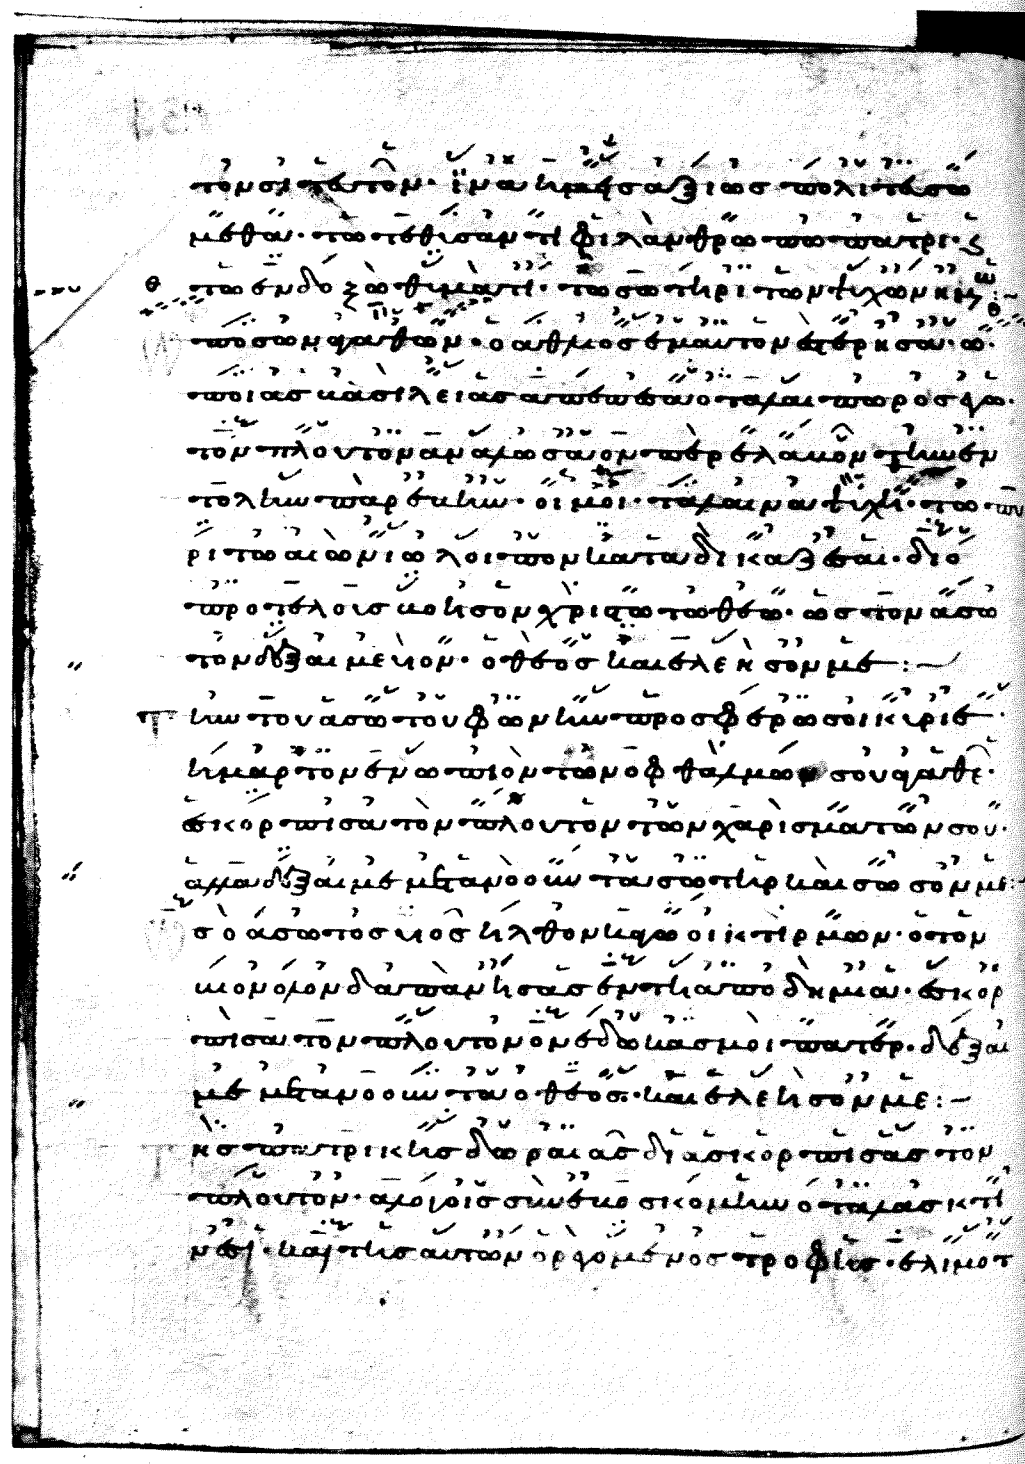 τον σιτευτον· ϊνα ημεισ αξιωσ πολιτευσω
μεθα· τω τε θυσαντι φιλανθρωπω πατρι· κ
τω ενδοξω θυματι· τω σωτηρι των ψυχων ημ
ποσων αγαθων· ο αθλιοσ εμαυτον εστερησα· ω
ποιασ βασιλειασ απεπεσα ο ταλασ προσ γω
τον πλουτον αναλωσα ον περ ελαβον την εν
τολην παρεβην· οιμοι ταλαινα ψυχη· τω πυ
ρι τω αιωνιω λοιπον καταδικαζεσαι· διο
προ τελουσ βοησον χριστω τω θεω· ωσ τον ασω
τον δεξαι με υιον· ο θεοσ και ελεησον με :
ην του ασωτου φωνην προσφερω σοι κυριε·
ημαρτον ενωπιον των οφθαλμων σου αγαθε·
εσκορπισα τον πλουτον των χαρισματων σου·
αλλα δεξαι με μετανοουντα σωτηρ και σωσον με :
σ ο ασωτοσ υιοσ ηλθον καγω οικτιρμων· ο τον
βιον ολον δαπανησασ εν τη αποδημια· εσκορ
πισα τον πλουτον ον εδωκασ μοι πατερ· δεξαι
με μετανοουντα ο θεοσ· και ελεησον με :
κσ πατρικησ δωρεασ διασκορπισασ τον
πλουτον· αλογοισ συνεβοσκομην ο ταλασ κτη
νεσι· και τησ αυτων ορεγομενοσ τροφησ· ελιμοτ